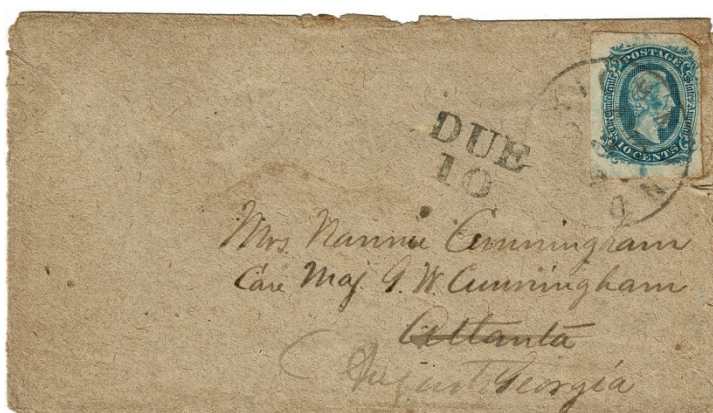 POSTAGE
10 CENTS
DUE
10
Mrs Nannie Cunningham
Care Maj G. W. Cunningham
Atlanta
Georgia